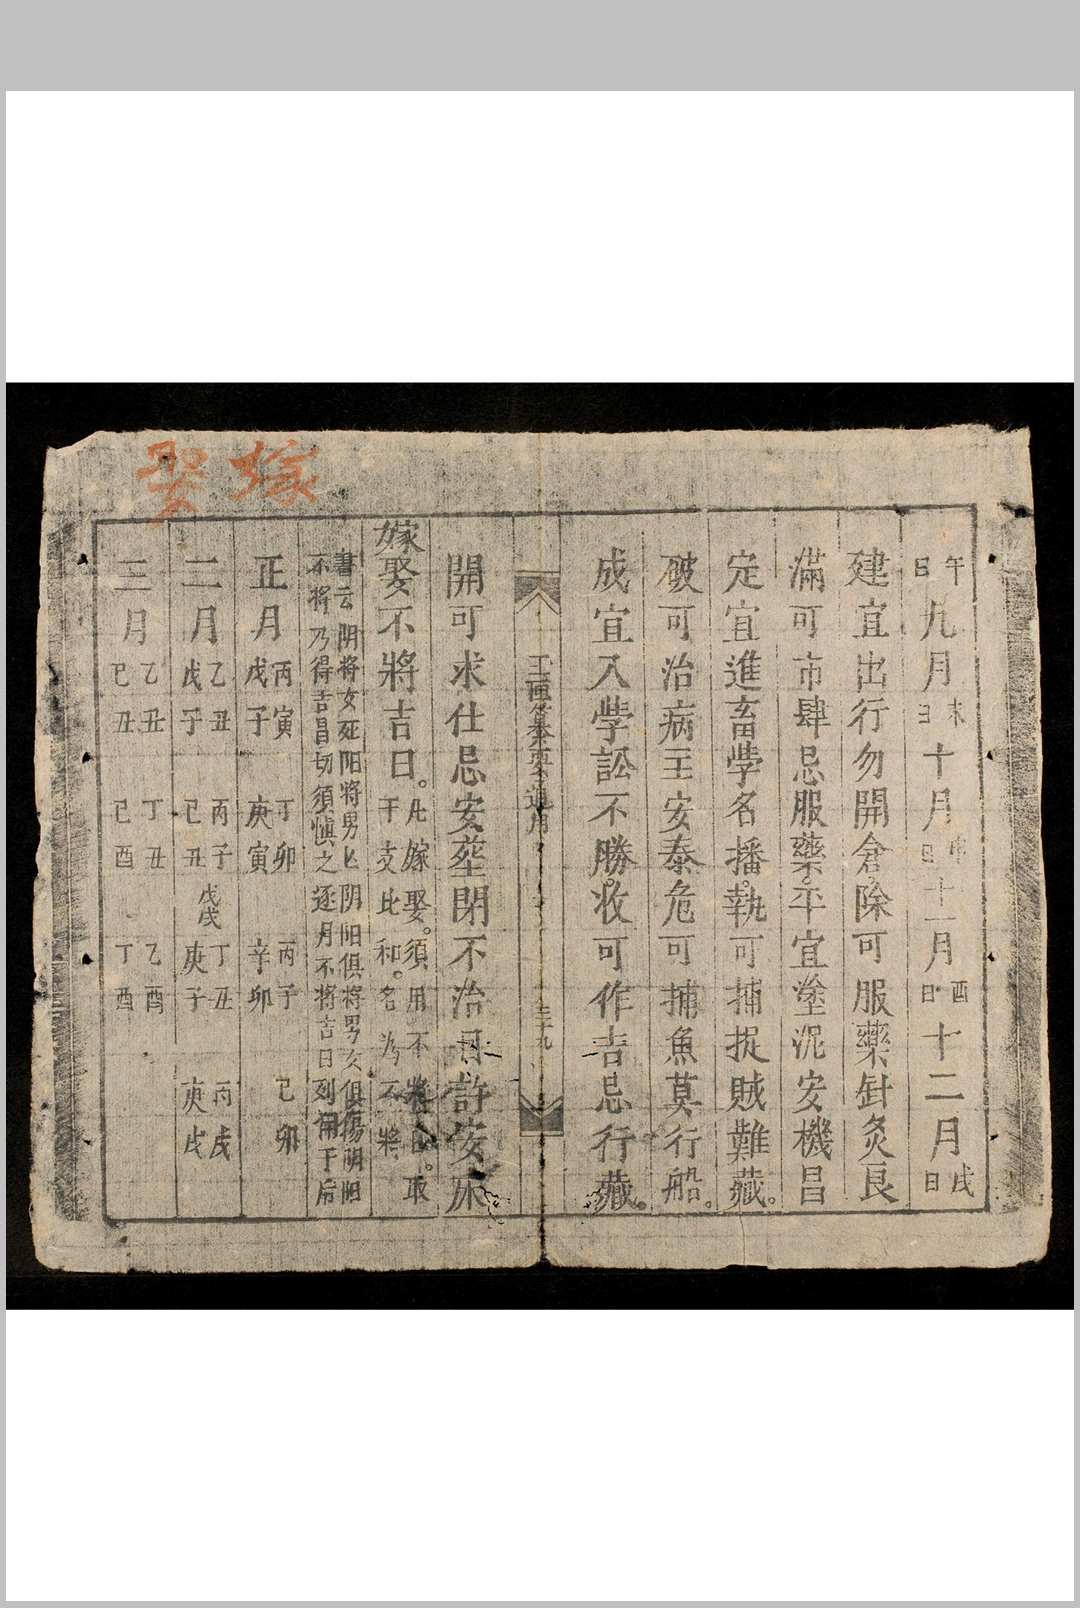 嫁娶
午日九月未日十月申日十一月酉日十二月戌日
建宜出行勿開倉除可服藥針灸良
滿可市肆忌服藥平宜塗泥安機昌
定宜進畜學名播執可捕捉賊難藏
破可治病主安泰危可捕魚莫行船
成宜入學訟不勝收可作吉忌行藏
玉匣纂要通用 三十九
開可求仕忌安塟閉不治目許安床
嫁娶不將吉日
凡嫁娶須用不將日取
干支比和名為不將
書云阴將女死阳將男亡阴阳俱將男女俱傷阴阳
不将乃得吉昌切須慎之逐月不將吉日列開于后
正月 丙寅 丁卯 丙子 己卯
戊子 庚寅 辛卯
二月 乙丑 丙子 戊戌 丁丑 丙戌
戊子 己丑 庚子 庚戌
三月 乙丑 丁丑 乙酉
己丑 己酉 丁酉